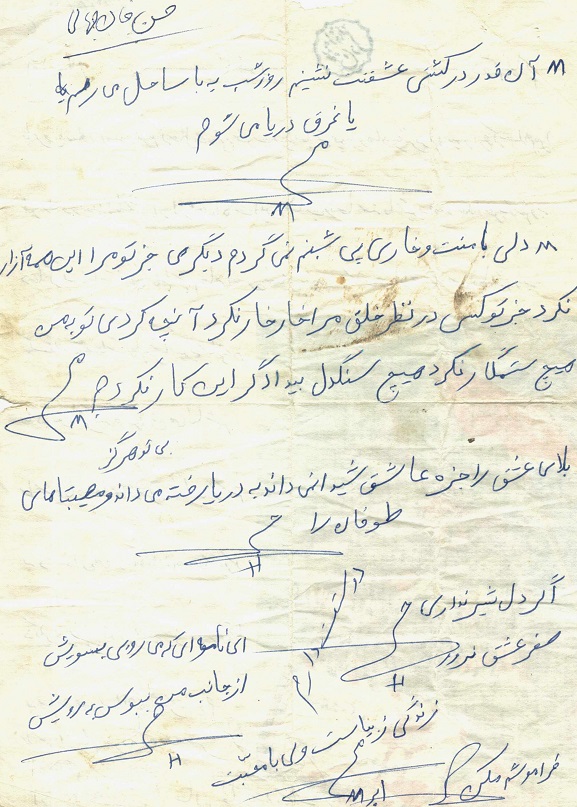 حسن خان
M آن قدر در کشتی عشقت نشینم روز شب یا با ساحل می رسم یا
یا غرق دریا می شوم
M
M دلی با منت و خاری پی شبنم نمی گردم دیگری جز تو مرا این همه آزار
نکرد جز تو کسی در نظر خلق مرا خار خار نکرد آنچه کردی تو به من
هیچ ستمگار نکرد هیچ سنگدل بیدادگر این کار نکرد
M
بی تو هرگز
بلای عشق را جزه عاشق شیدا نمی داند به دریا رخته می داند مصیبتاهای
طوفان را
H
اگر دل شیر نداری
سفر عشق نرو
H
ای نامه ای که می روی بسویش
از جانب من ببوس رویش
H
زندگی زیباست ولی با محبت
فراموشم مکن
M